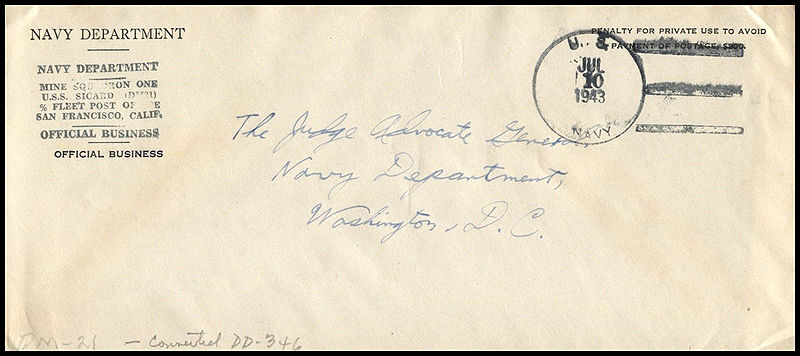 NAVY DEPARTMENT
NAVY DEPARTMENT
MINE SQUADRON ONE
U.S.S. SICARD
% FLEET POST OFFICE
SAN FRANCISCO, CALIF.
OFFICIAL BUSINESS
OFFICIAL BUSINESS
PENALTY FOR PRIVATE USE TO AVOID
PAYMENT OF POSTAGE, $300.
U. S.
JUL
10
1943
NAVY
The Judge Advocate General,
Navy Department,
Washington, D.C.
DM-21 - Converted DD-346